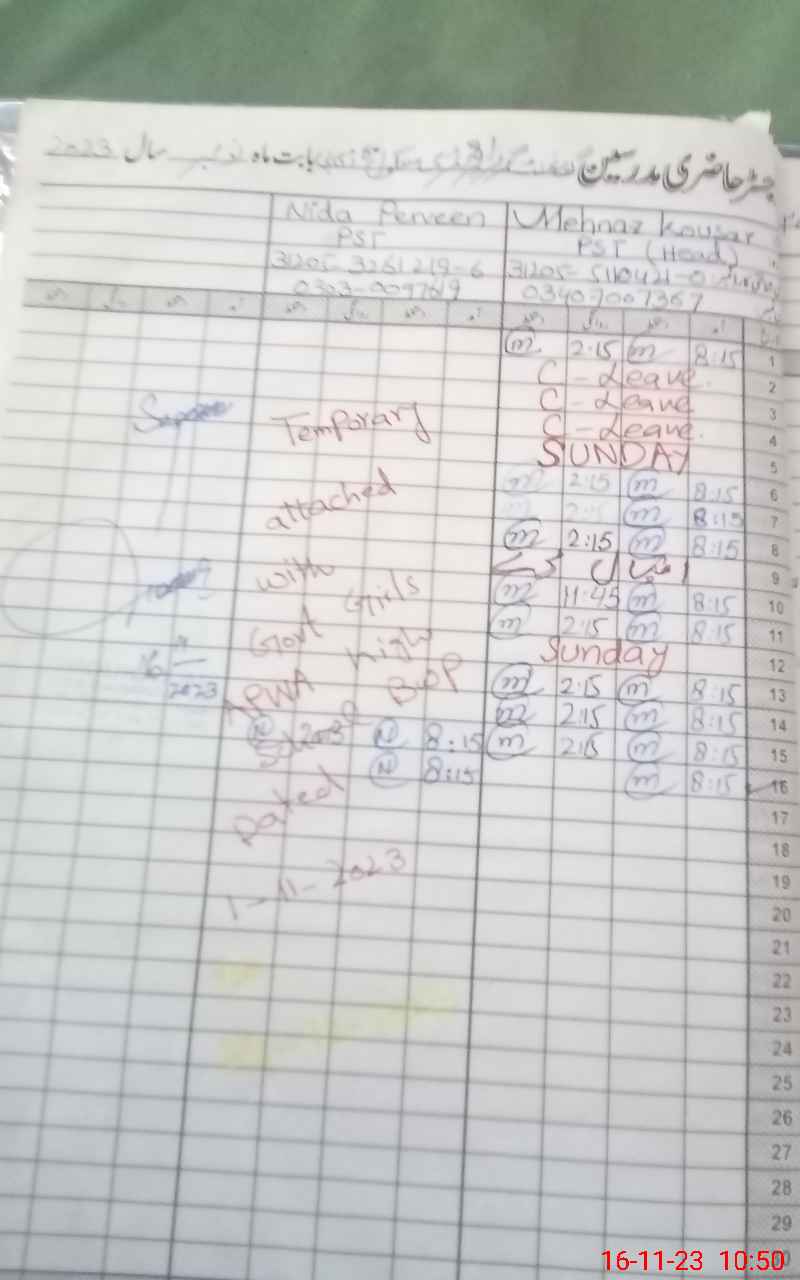 رجسٹر حاضری مدرسین
بابت ماہ نومبر سال 2023
Nida Perveen
PST
0303-0097619
Mehnaz Kousar
PST (Head)
31205-5110421-0
03407007367
m 2:15 m 8:15 1
C-Leave. 2
C-Leave 3
C-Leave. 4
SUNDAY 5
m 2:15 m 8:15 6
m 2:15 m 8:15 7
m 2:15 m 8:15 8
اقبال ڈے 9
m 11:45 m 8:15 10
m 2:15 m 8:15 11
Sunday 12
m 2:15 m 8:15 13
m 2:15 m 8:15 14
N 8:15 m 2:15 m 8:15 15
N 8:15 m 8:15 16
17
18
19
20
21
22
23
24
25
26
27
28
29
30
Temporary
attached
with
Govt Girls
APWA High
School BWP
Dated
1-11-2023
16
11
2023
16-11-23 10:50